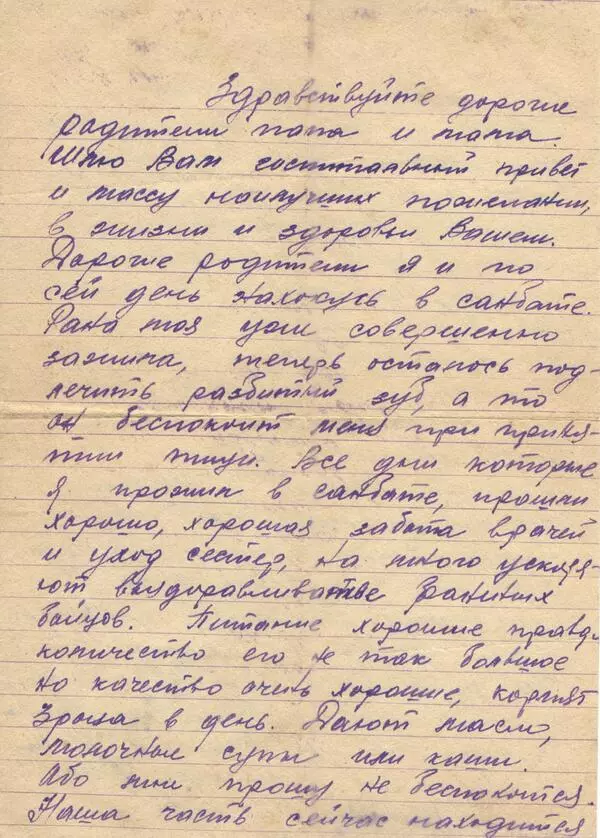 Здравствуйте дорогие
родители папа и мама.
Шлю Вам госпитальный привет
и массу наилучших пожелании,
в жизни и здоровьи Вашем.
Дорогие родители я и по
сей день нахожусь в санбате.
Рана моя уже совершенно
зажила, теперь осталось под-
лечить разбитый зуб, а то
он беспокоит меня при приня-
тии пищи. Все дни которые
я прожил в санбате, прошли
хорошо, хорошая забота врачей
и уход сестер, на много ускоря-
ют выздоравливатье раниных
бойцов. Питание хорошие правда
количество его не так большое
но качество очень хорошие, кормят
3 раза в день. Дают масло,
молочные супы или каши.
Або мни прошу не беспокоится.
Наша часть сейчас находится